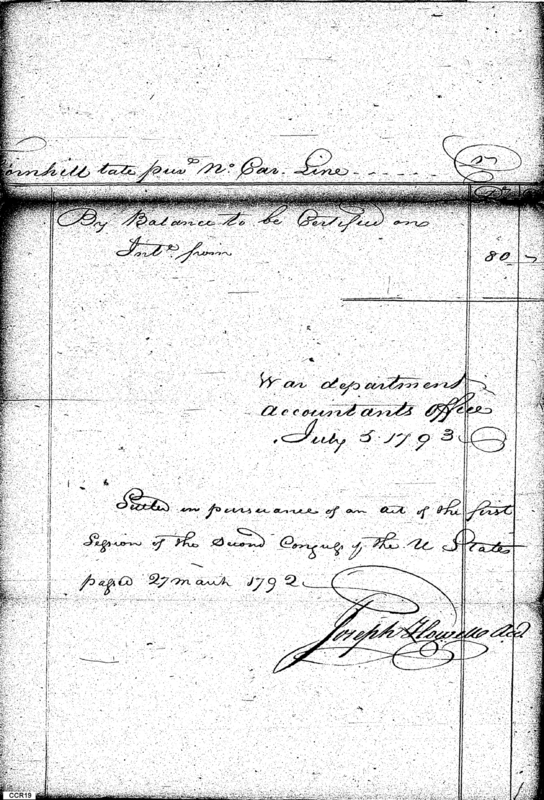 ornhill late priv.t No. Car. Line
Dr
By Balance to be Certified on
Int.t from
80
War department
accountants office
July 5 1793
Settled in pursuance of an act of the first
Session of the Second Congress of the U States
passed 27 march 1792
Joseph Howell Acct
CCR19